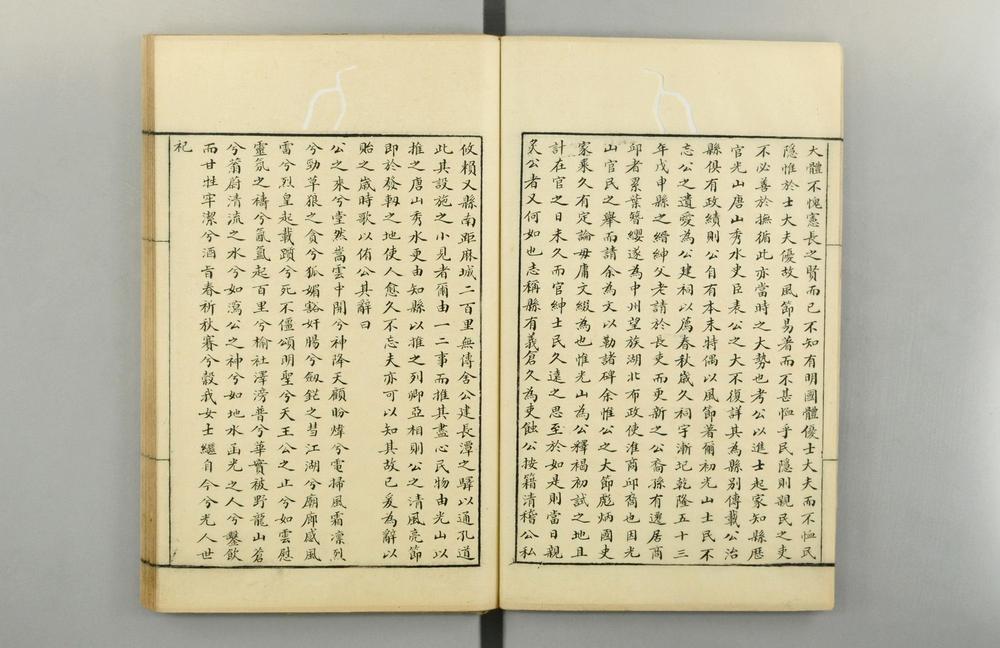 大體不愧憲長之賢而已不知有明國體優士大夫而不恤民
隱惟於士大夫優故風節易著而不甚恤乎民隱則親民之吏
不必善於撫循此亦當時之大勢也考公以進士起家知縣歷
官光山唐山秀水吏臣表公之大不復詳其為縣別傳載公治
縣俱有政績則公自有本末特偶以風節著爾初光山士民不
忘公之遺愛為公建祠以薦春秋歲久祠宇漸圮乾隆五十三
年戊申縣之縉紳父老請於長吏而更新之公裔孫有遷居商
邱者累葉簪纓遂為中州望族湖北布政使淮商邱裔也因光
山官民之舉而請余為文以勒諸碑余惟公之大節彪炳國史
家乘久有定論毋庸文綴為也惟光山為公釋褐初試之地且
計在官之日未久而官紳士民久遠之思至於如是則當日親
炙公者又何如也志稱縣有義倉久為吏蝕公按籍清稽公私
攸賴又縣南距麻城二百里無傳舍公建長潭之驛以通孔道
此其設施之小見者爾由一二事而推其盡心民物由光山以
推之唐山秀水更由知縣以推之列卿亞相則公之清風亮節
即於發軔之地使人愈久不忘夫亦可以知其故已爰為辭以
貽之歲時歌以侑公其辭曰
公之來兮堂然嵩雲中開兮神降天顧盼煒兮電掃風霜凛烈
兮勁草狼之貪兮狐媚豁奸腸兮劍鋩之彗江湖兮廟廊感風
雷兮烈皇起載躓兮死不僵頌明聖兮天王公之止兮如雲慰
靈氛之禱兮氤氳起百里兮榆社澤滂普兮華實被野龍山蒼
兮蓊蔚清流之水兮如瀉公之神兮如地水函光之人兮鑿飲
而甘牲牢潔兮酒旨春祈秋賽兮穀我女士繼自今兮光人世
祀